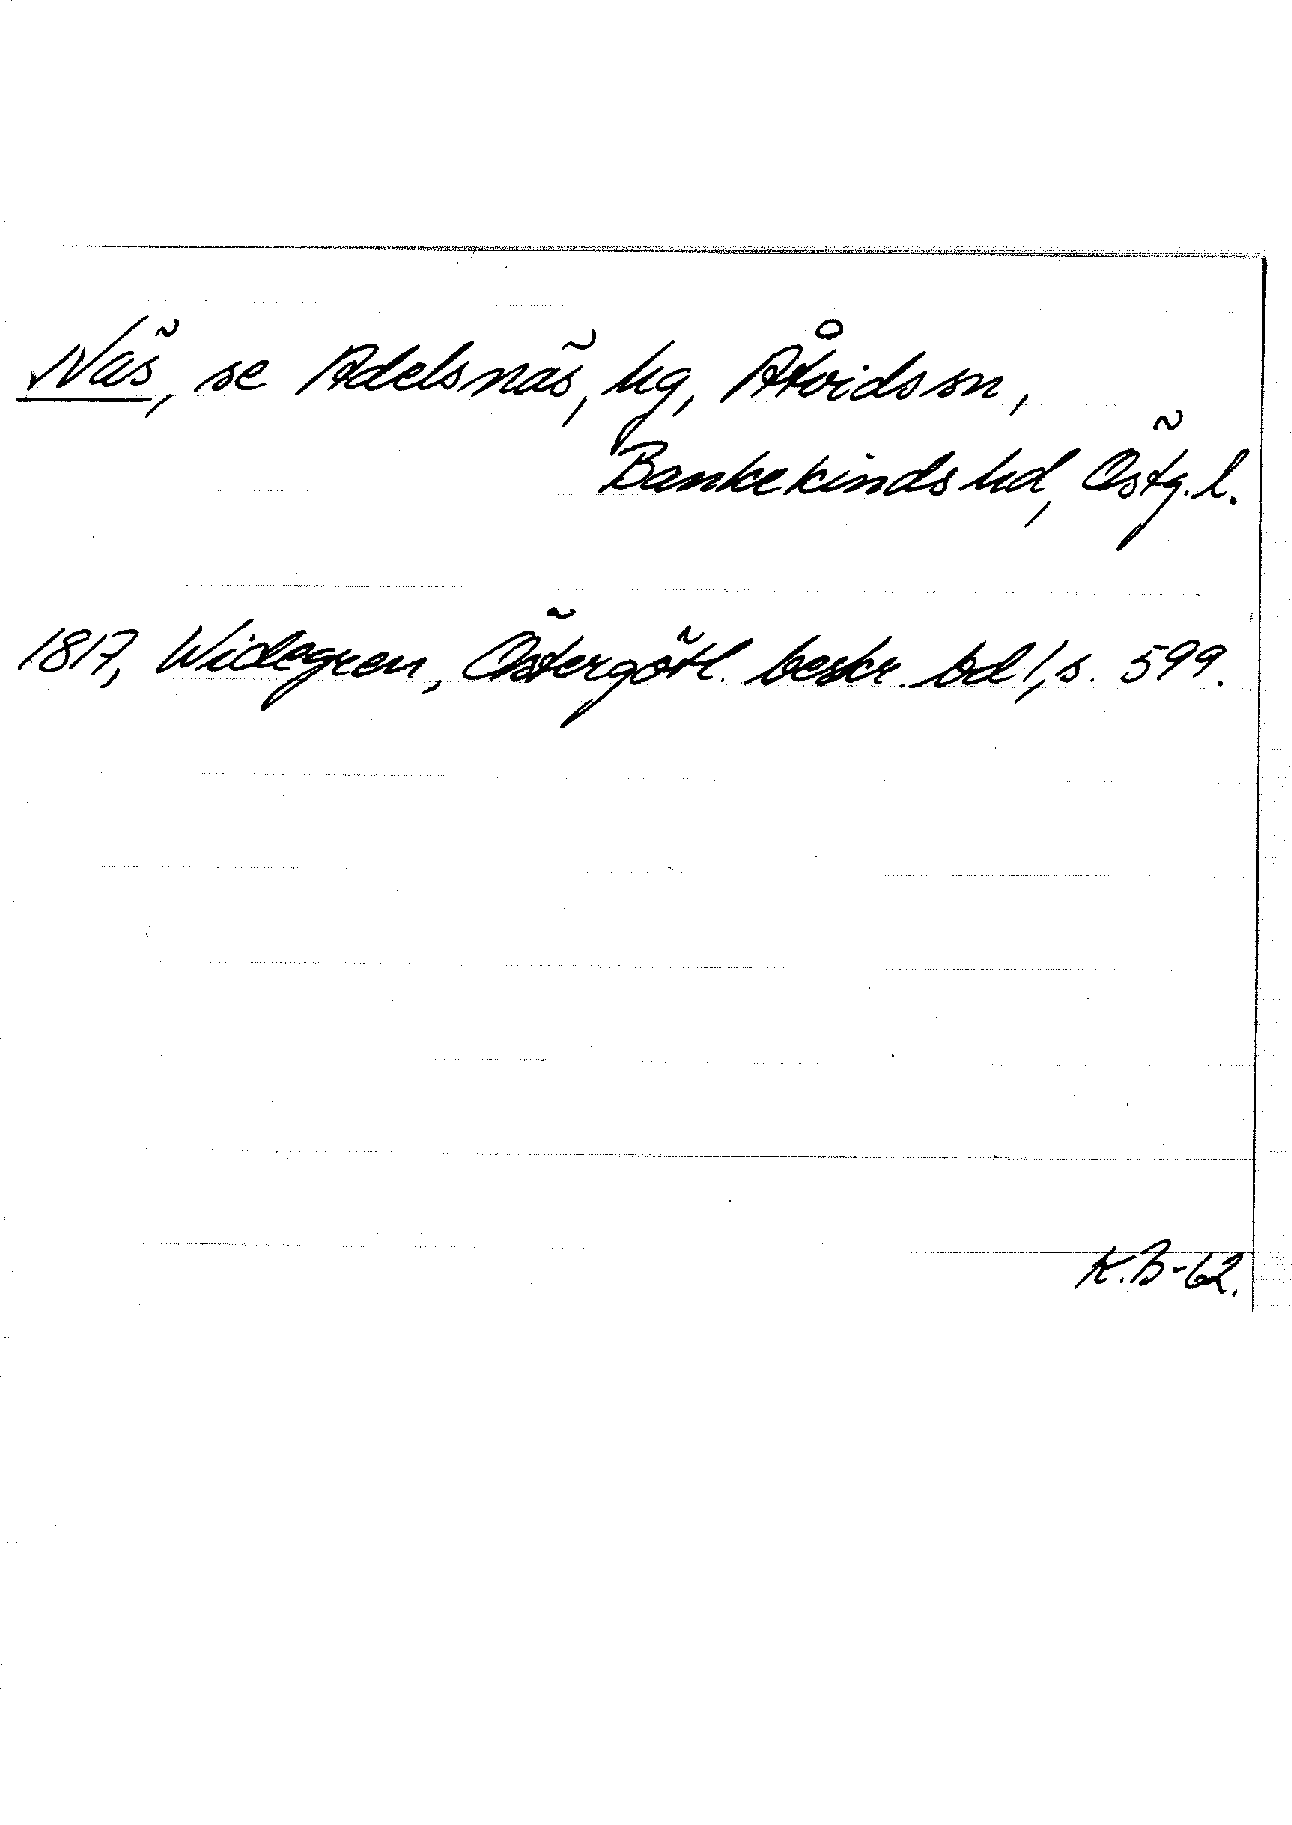 Näs, se Adelsnäs, hg, Åtvids sn,
Bankekinds hd, Östg. l.
1817, Widegren, Östergötl. beskr. bd 1, s. 599.
K.B-62.